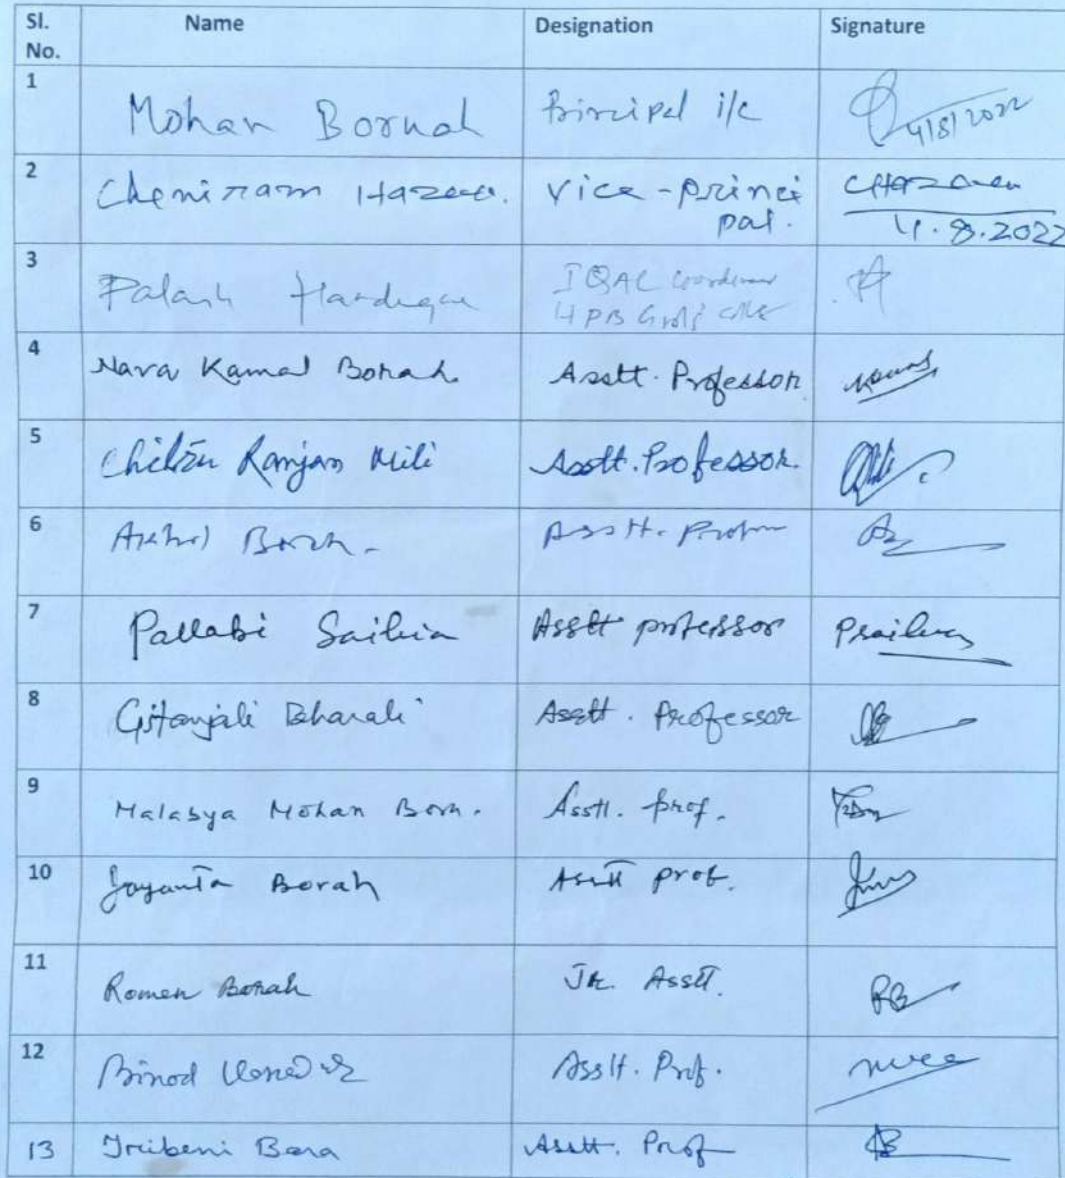 Sl. No. Name Designation Signature
1 Mohan Boruah Principal i/c 4/8/2022
2 Cheniram Hazarika. Vice-princi
pal. 4.8.2022
3 Palash Handique IQAC Coordinator
HPB Girls'
4 Nava Kamal Borah Asstt. Professor
5 Chitta Ranjan Mili Asstt. Professor.
6 Asstt.
7 Pallabi Saikia Asstt professor PSaikia
8 Gitanjali Bharali Asstt. Professor
9 Malabya Mohan Asstt. Prof.
10 Jayanta Borah Asstt prof.
11 Romen Borah Jr. Asstt. RB
12 Binod Asstt. Prof.
13 Tribeni Bora Asstt. Prof